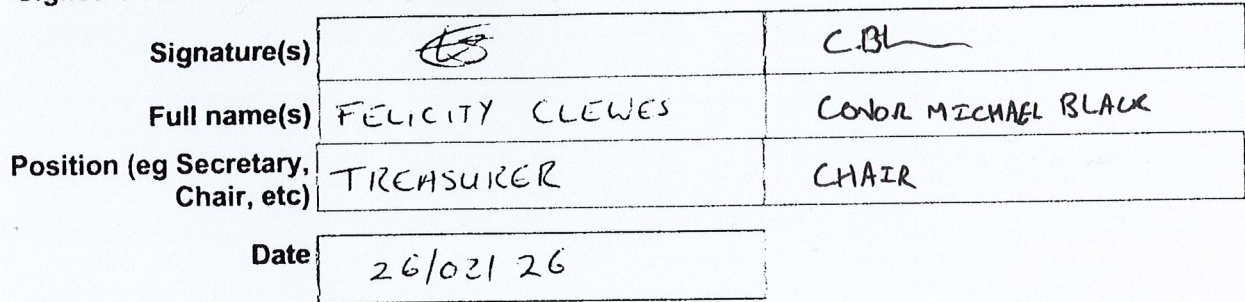 Signature(s) C.Bl
Full name(s) FELICITY CLEWES CONOR MICHAEL BLACK
Position (eg Secretary, TREASURER CHAIR
Chair, etc)
Date 26/02/26